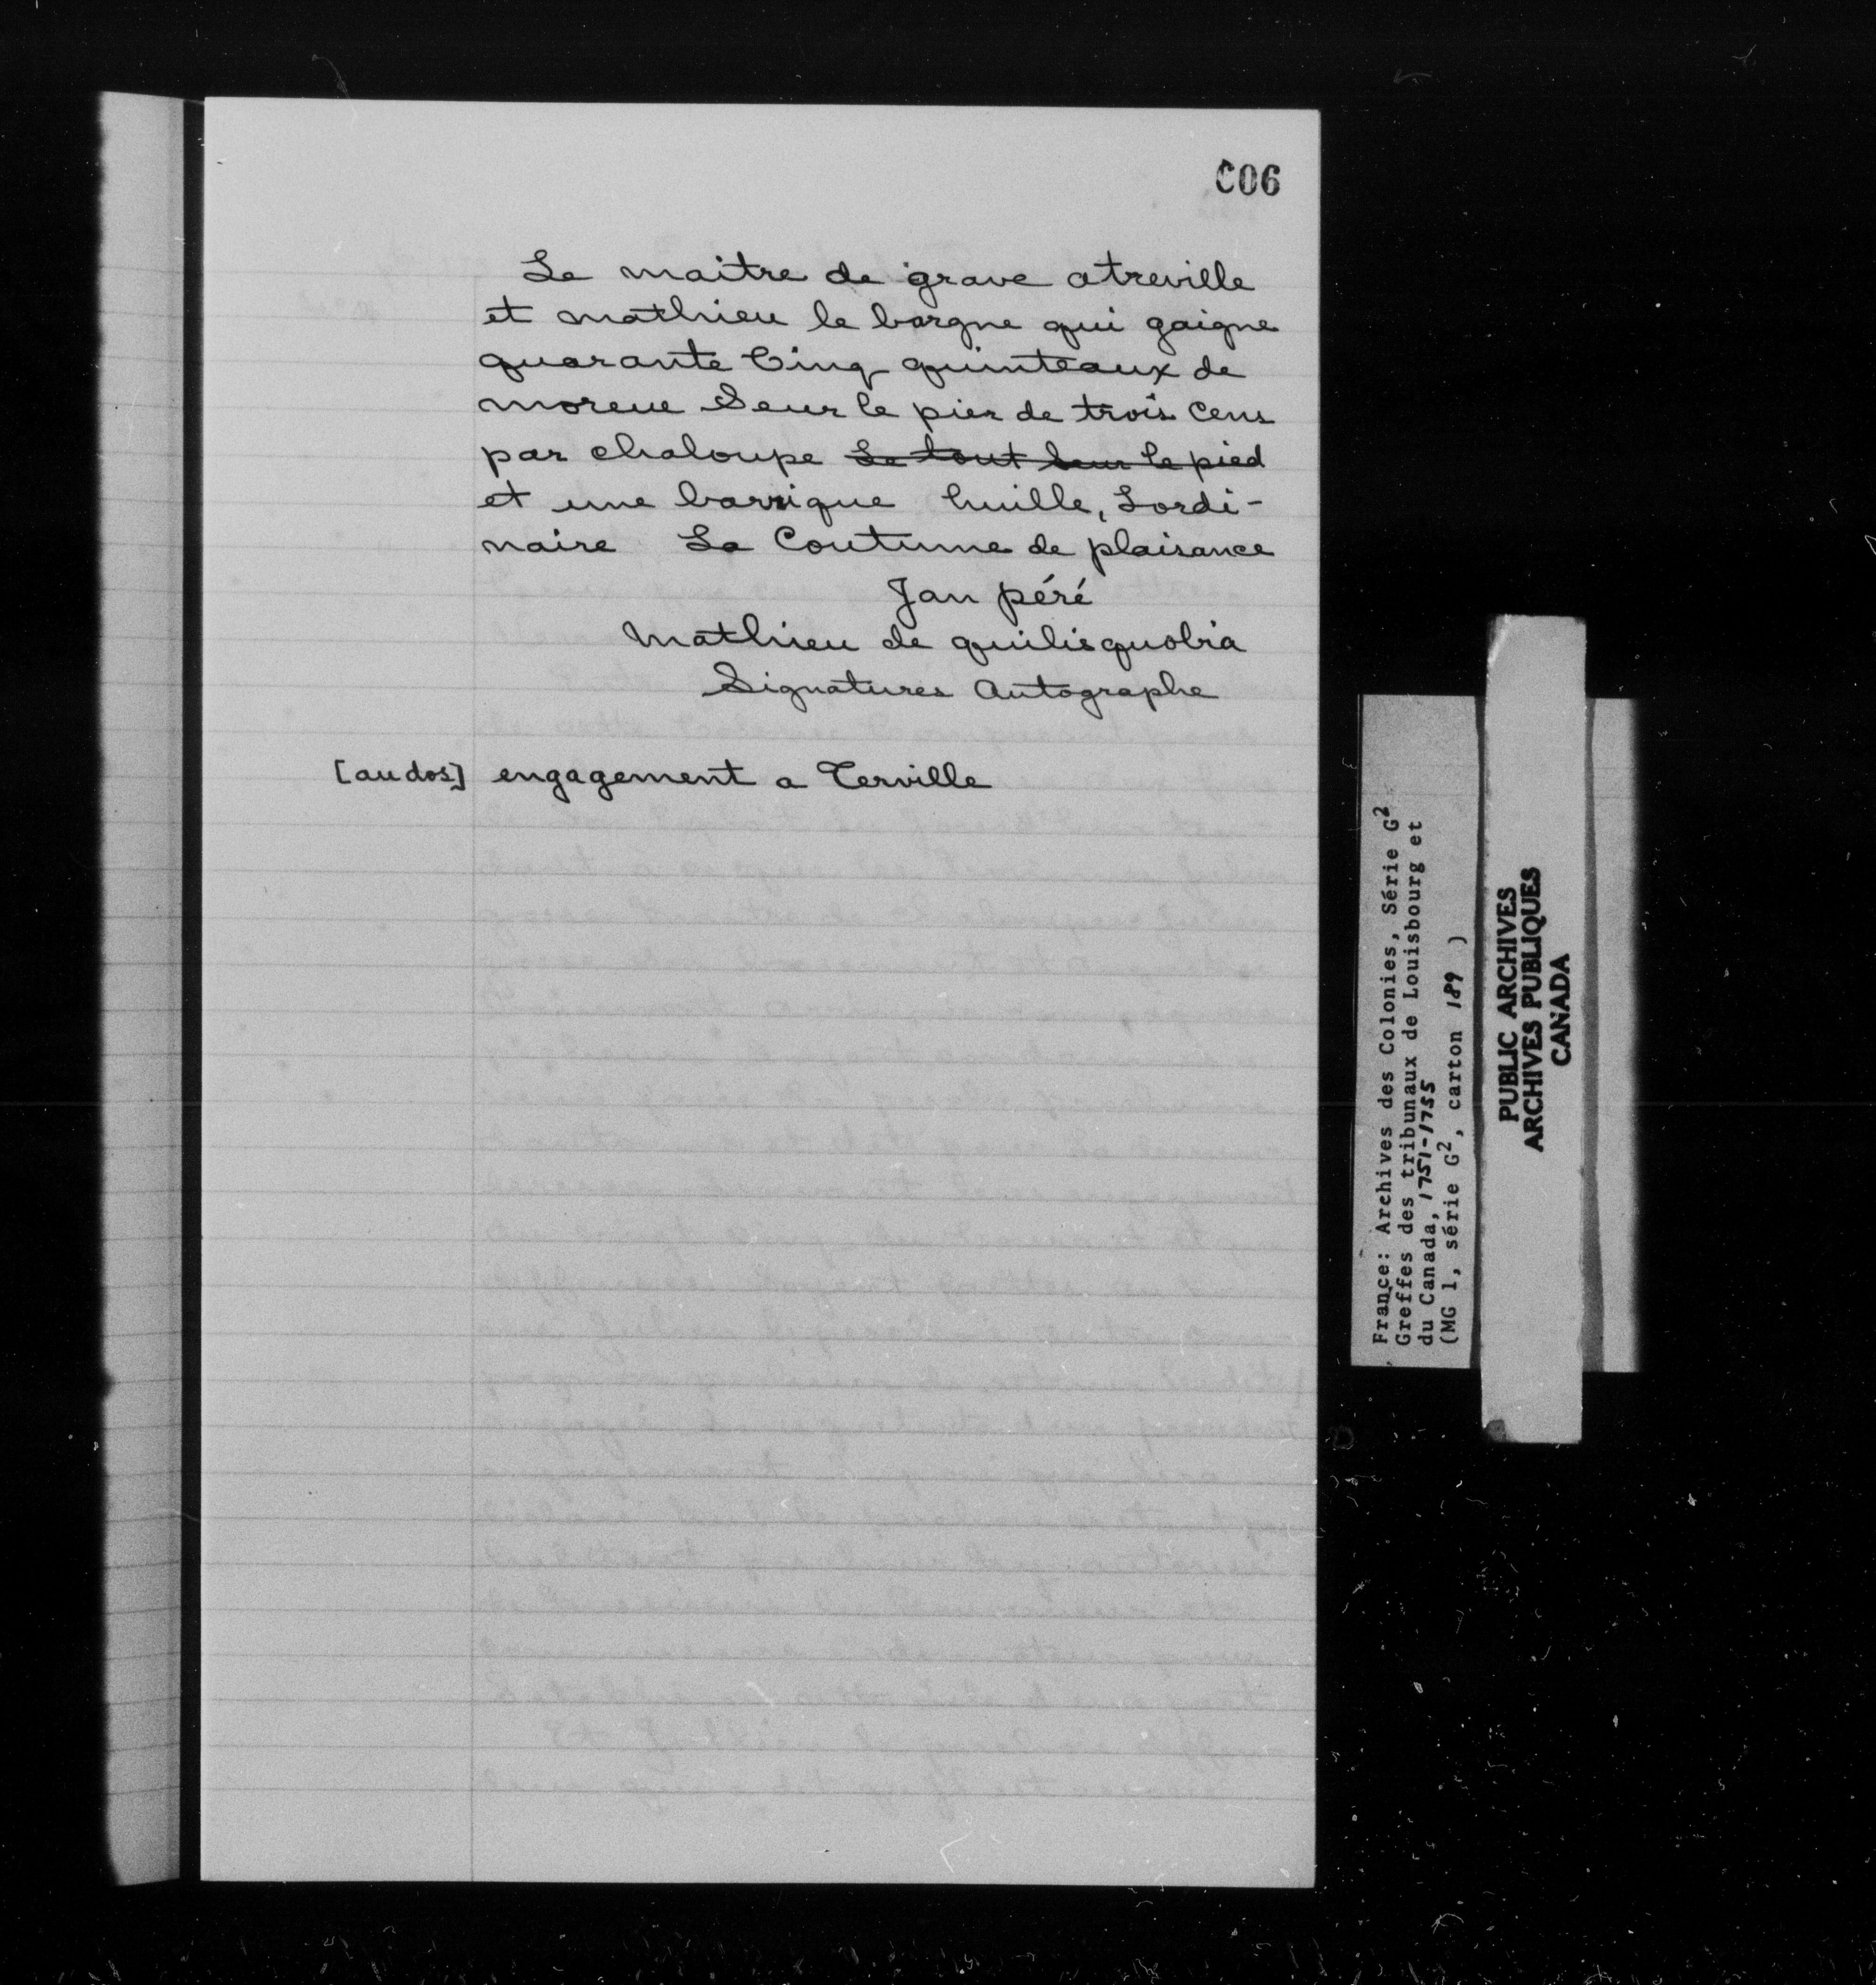 C06
Le maitre de grave atreville
et mathieu le borgne qui gaigne
quarante Cinq quinteaux de
moreue Seur le pier de trois Cens
par chaloupe Le tout Seur le pied
et une barrique huille, Lordi-
naire La Coutume de plaisance
Jan péré
Mathieu de quilisquobia
Signatures Autographe
[au dos] engagement a Terville
France: Archives des Colonies, Série G²
Greffes des tribunaux de Louisbourg et
du Canada, 1751-1755
(MG 1, série G², carton 189 )
PUBLIC ARCHIVES
ARCHIVES PUBLIQUES
CANADA